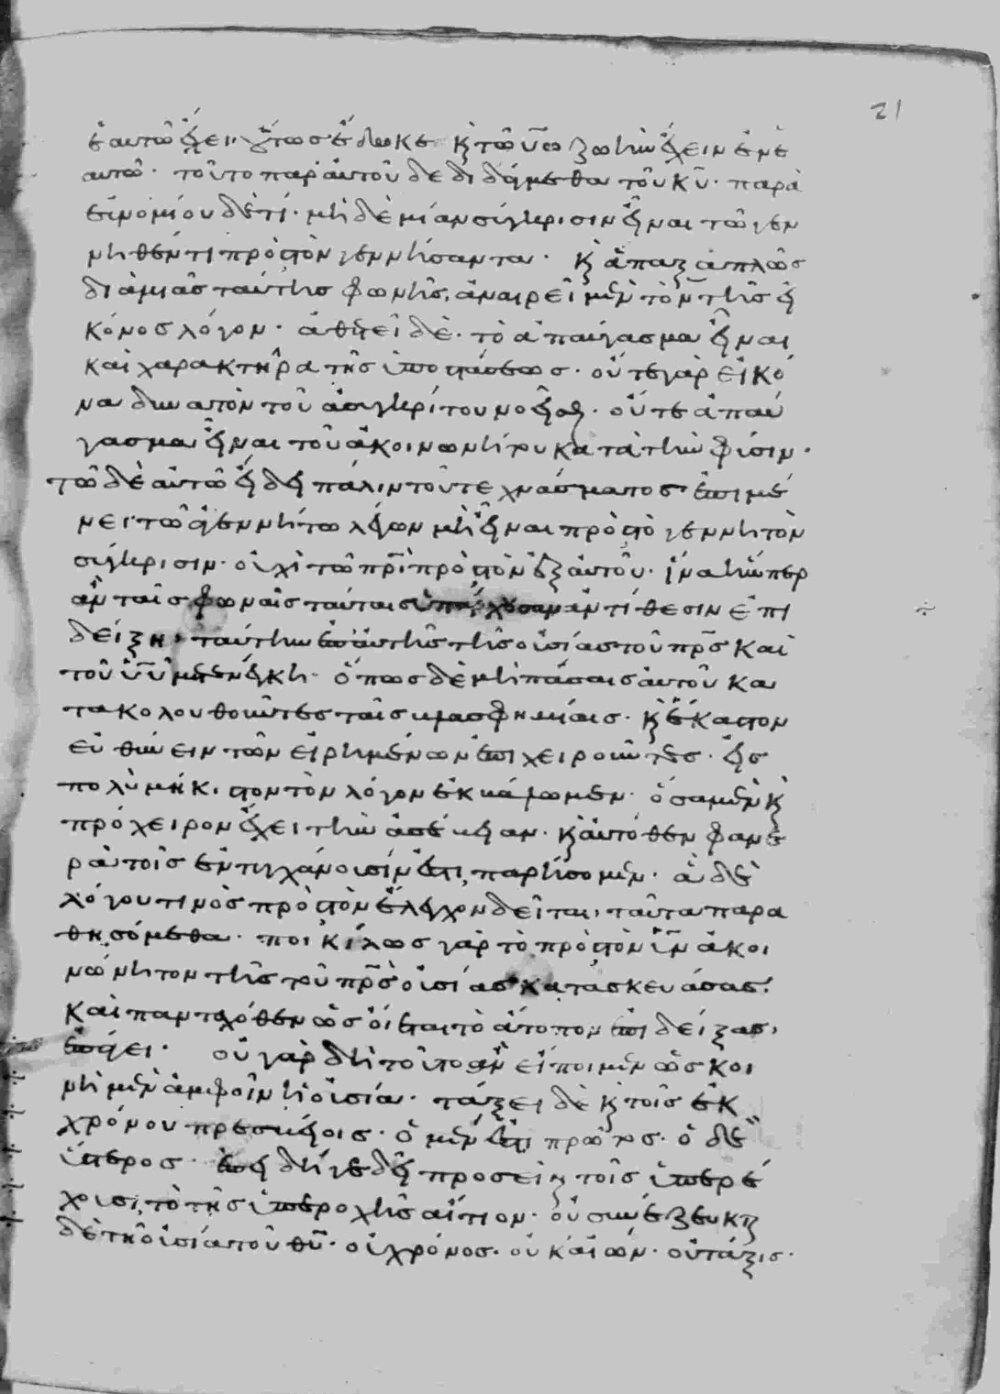 21
ἑαυτῶ ἔχει· οὕτως ἔδωκε κ τῶ υῶ ζωὴν ἔχειν ἐν ἑ
αυτῶ· τοῦτο παρ' αὐτοῦ δεδιδάγμεθα τοῦ κυ· παρὰ
εὐνομίου δὲ τί· μηδὲ μίαν σύγκρισιν εἶναι τῶ γεν
νηθέντι πρὸς τὸν γεννήσαντα· κ ἅπαξ ἁπλῶς
διὰ μιᾶς ταύτης φωνῆς, ἀναιρεῖ μὲν τὸν τῆς εἰ
κόνος λόγον· ἀθετεῖ δὲ· τὸ ἀπαύγασμα εἶναι
καὶ χαρακτῆρα τῆς ὑποστάσεως· οὔτε γὰρ εἰκό
να δυνατὸν τοῦ ἀσυγκρίτου νοεῖσθ· οὔτε ἀπαύ
γασμα εἶναι τοῦ ἀκοινωνήτου κατὰ τὴν φύσιν·
τῶ δὲ αὐτῶ εἴδει πάλιν τοῦ τεχνάσματος ἐπιμέ
νει τῶ ἀγεννήτω λέγων μὴ εἶναι πρὸς τὸ γεννητὸν
σύγκρισιν· οὐχὶ τῶ πρὶ πρὸς τὸν ἐξ αὐτοῦ· ἵνα ἥνπερ
ἂν ταῖς φωναῖς ταύταις ὑπάρχουσαν ἀντίθεσιν ἐπι
δείξη· ταύτην ἐπ' αὐτῆς τῆς οὐσίας τοῦ πρς καὶ
τοῦ υυ μετενέγκη· ὅπως δὲ μὴ πάσαις αὐτοῦ κα
τακολουθοῦντες ταῖς βλασφημίαις· κ ἕκαστον
εὐθύνειν τῶν εἰρημένων ἐπιχειροῦντες· εἰς
πολὺ μήκιστον τὸν λόγον ἐκβάλωμεν· ὅσα μὲν κ
πρόχειρον ἔχει τὴν ἀσέβειαν· κ αὐτόθεν φανε
ρὰ τοῖς ἐντυγχάνουσίν ἐστι, παρήσομεν· ἃ δὲ
λόγου τινὸς πρὸς τὸν ἔλεγχον δεῖται, ταῦτα παρα
θησόμεθα· ποικίλως γὰρ τὸ πρὸς τὸν υν ἀκοι
νώνητον τῆς τοῦ πρς οὐσίας κατασκευάσας·
καὶ πανταχόθεν ὡς οἴεται τὸ ἄτοπον ἐπιδείξας,
ἐπάγει· οὐ γὰρ δὴ τοῦτο ἂν εἴποιμεν ὡς κοι
νὴ μὲν ἀμφοῖν ἡ οὐσία· τάξει δὲ κ τοῖς ἐκ
χρόνου πρεσβείοις· ὁ μέν ἐστι πρῶτος· ὁ δὲ
ὕστερος· ἐπειδή γε δεῖ προσεῖναι τοῖς ὑπερέ
χουσι, τὸ τῆς ὑπεροχῆς αἴτιον· οὐ συνέζευκται
δὲ τῆ οὐσία τοῦ θυ· οὐ χρόνος· οὐκ αἰών· οὐ τάξις·